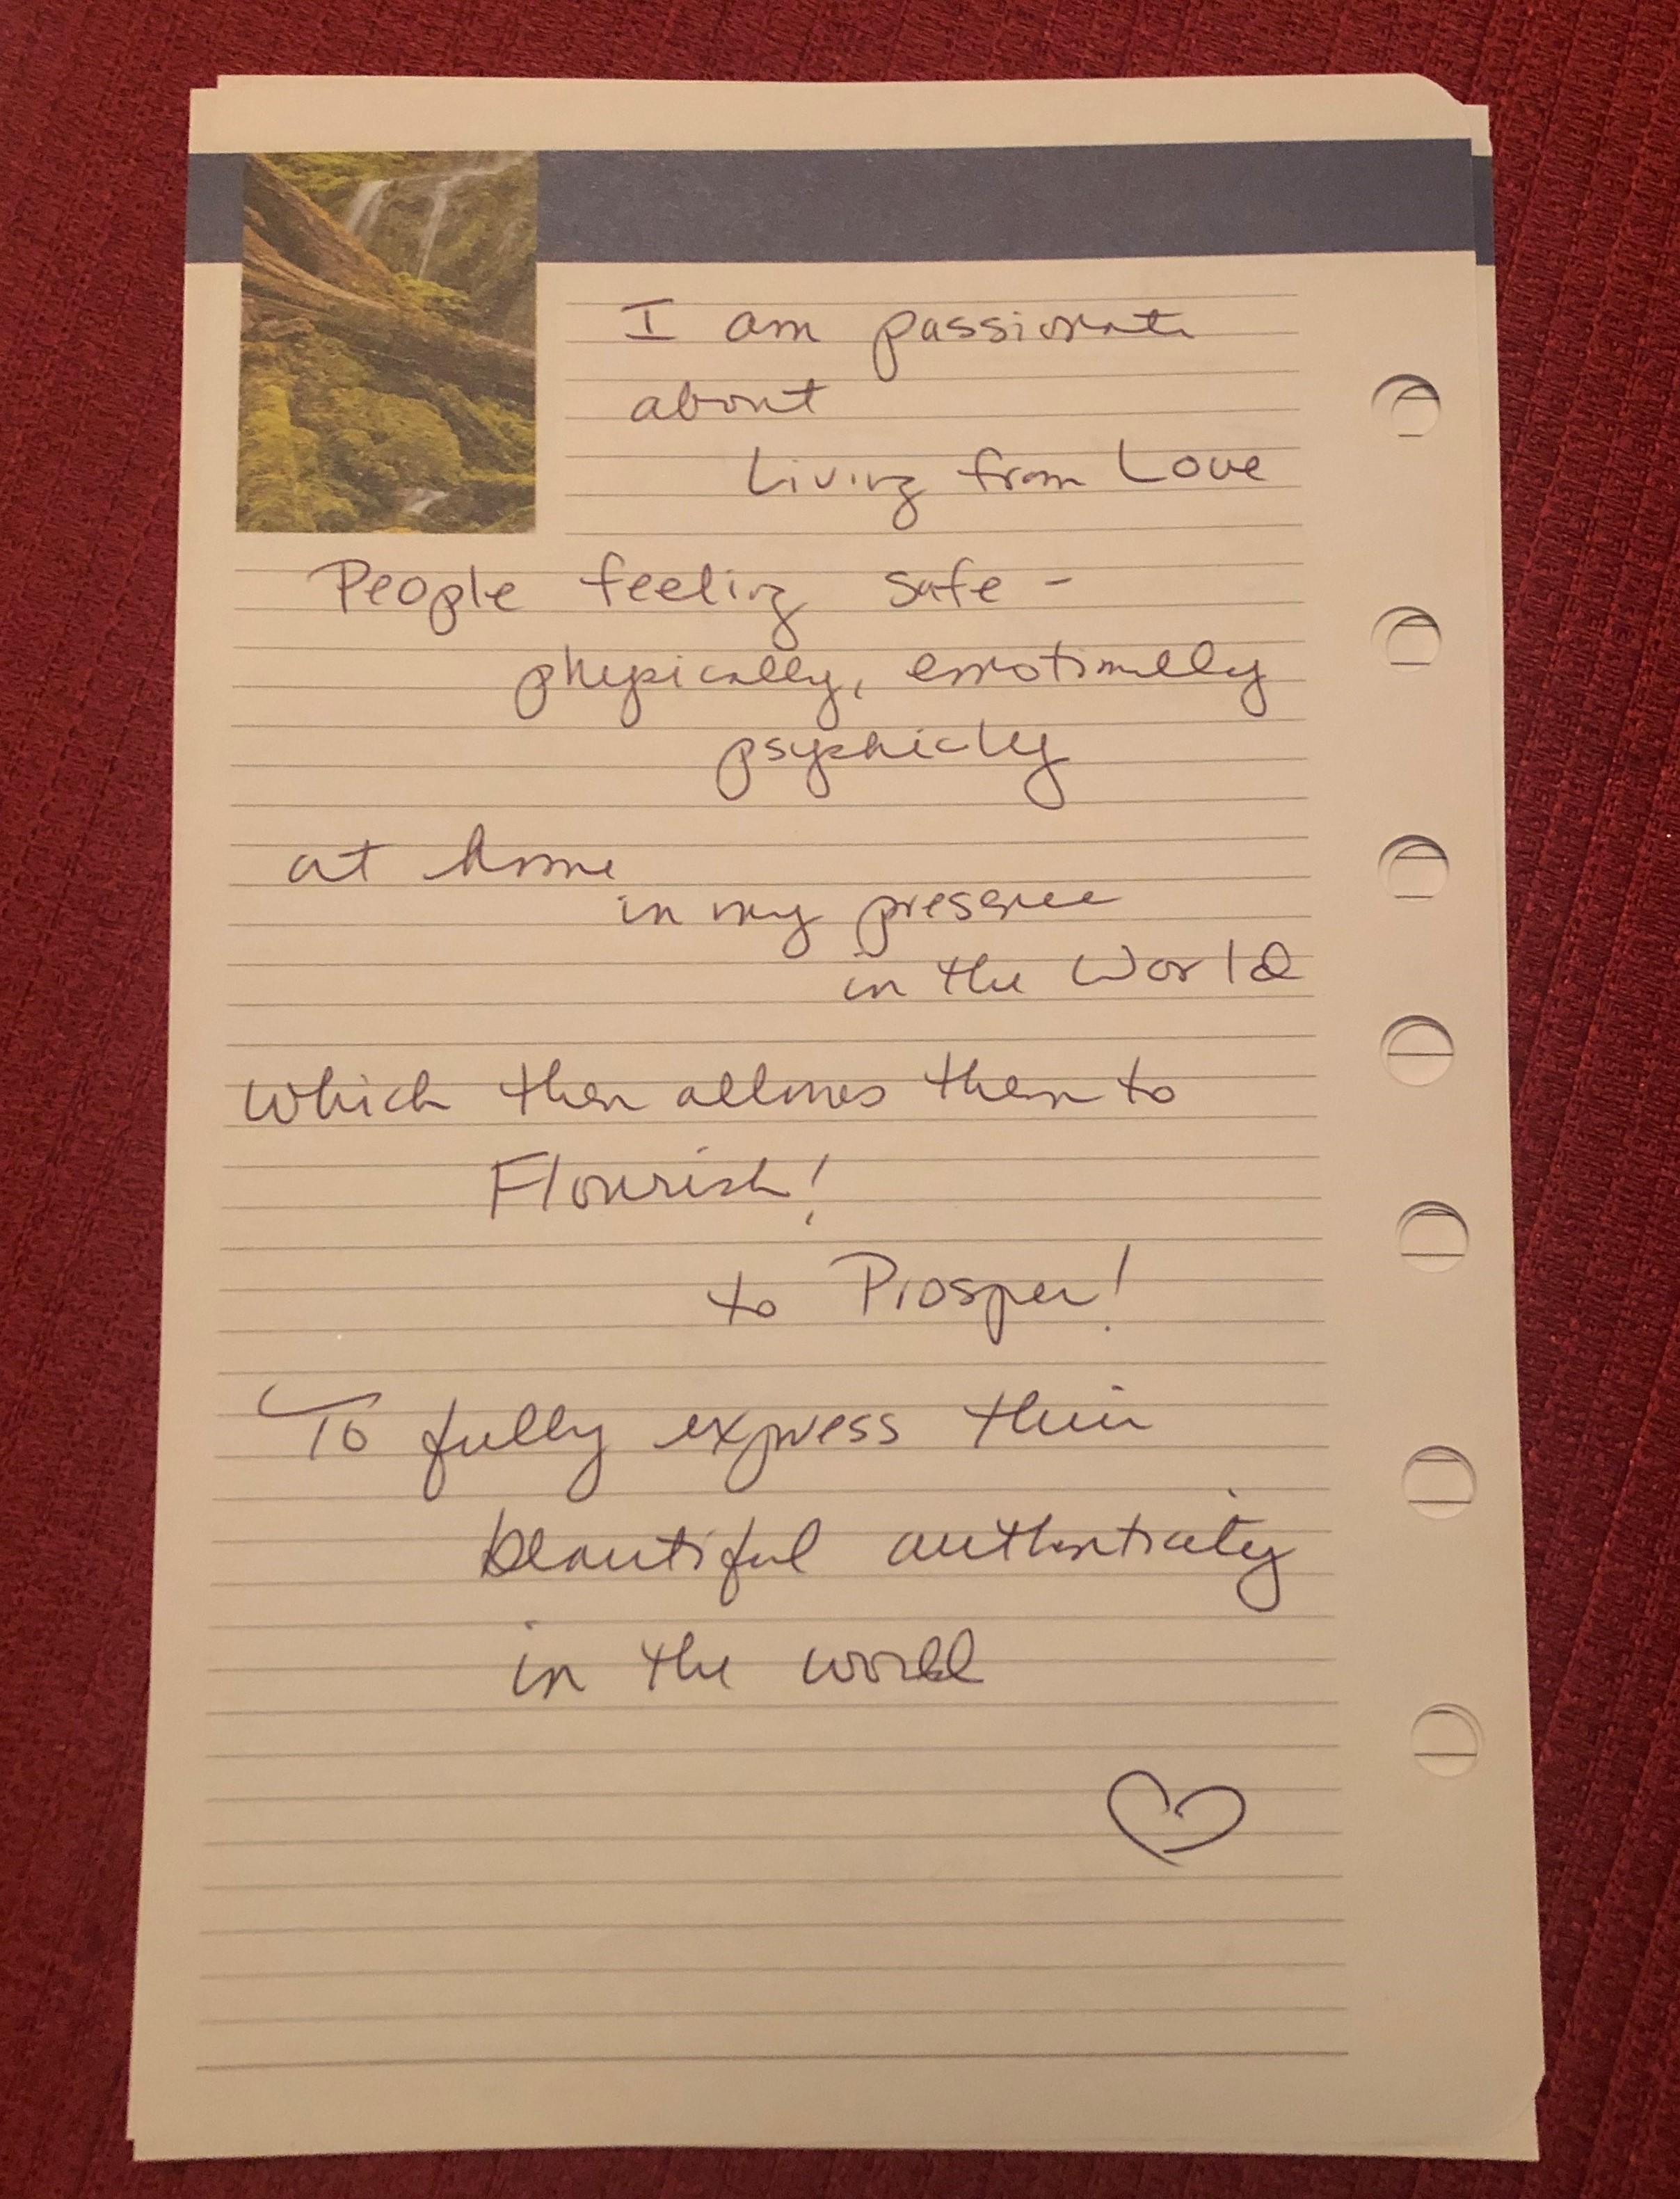 I am passionate
about
Living from Love
People feeling safe -
physically, emotionally
psychicly
at home
in my presence
in the World
Which then allows them to
Flourish!
to Prosper!
To fully express their
beautiful authenticity
in the world